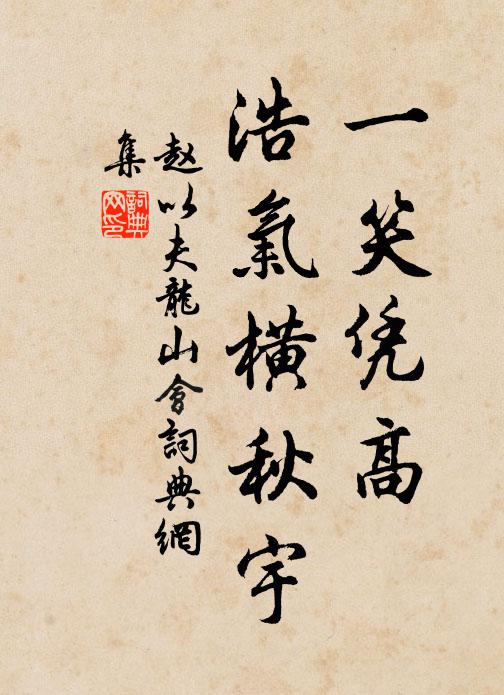 一笑凭高
浩氣橫秋宇
赵以夫龍山會詞典網
集
詞典
网印